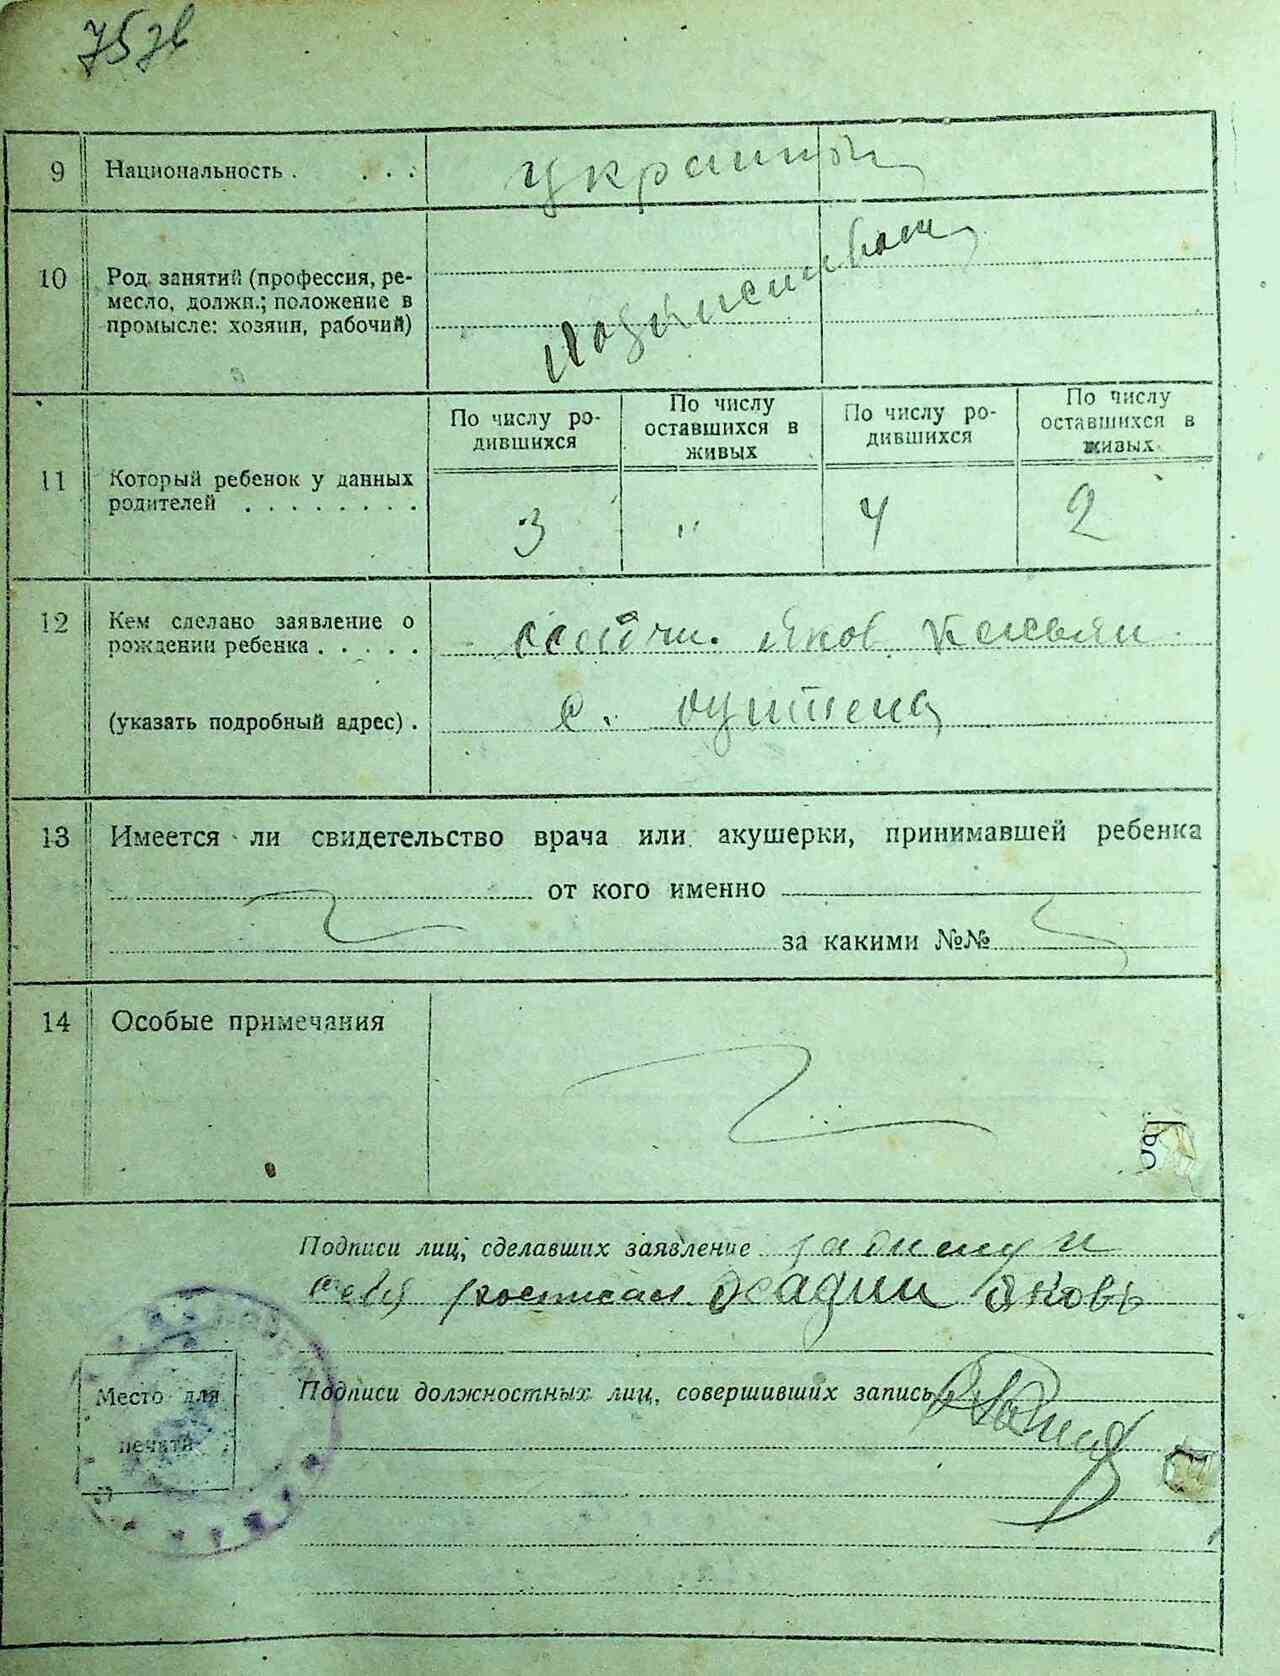 9 Национальность . . . . украинцы
10 Род занятий (профессия, ре-
месло, должн.; положение в
промысле: хозяин, рабочий)
По числу ро-
дившихся
По числу
оставшихся в
живых
По числу ро-
дившихся
По числу
оставшихся в
живых
11 Который ребенок у данных
родителей . . . . . . . .
3 " 4 2
12 Кем сделано заявление о
рождении ребенка . . . . .
(указать подробный адрес) .
с.
13 Имеется ли свидетельство врача или акушерки, принимавшей ребенка
от кого именно
за какими №№
14 Особые примечания
Подписи лиц, сделавших заявление
себя росписал Яковь
Место для
печати
Подписи должностных лиц, совершивших запись